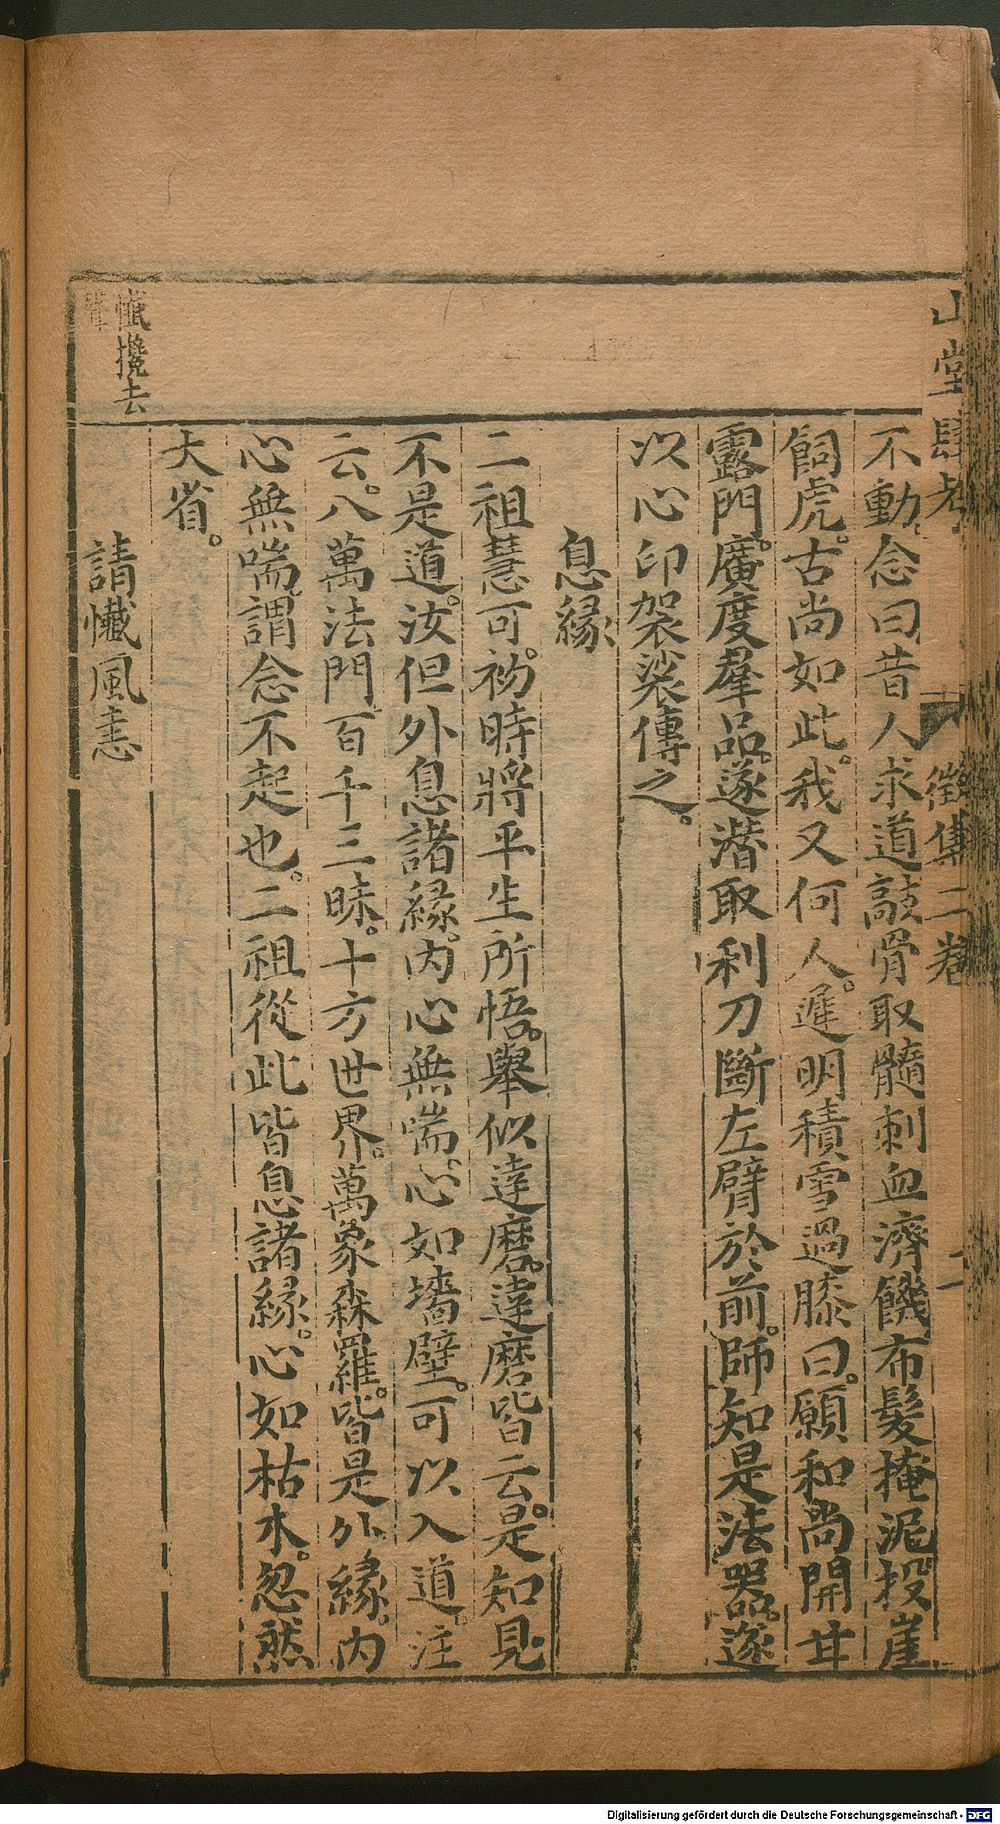 山堂肆考 徵集二卷 二
不動。念曰昔人求道敲骨取髓刺血濟饑布髮掩泥投崖
飼虎。古尚如此。我又何人。遲明積雪過膝曰。願和尚開甘
露門。廣度羣品。遂潛取利刀斷左臂於前。師知是法器。遂
以心印袈裟傳之。
息緣
二祖慧可。初時將平生所悟。舉似達磨。達磨皆云。是知見
不是道。汝但外息諸緣。內心無喘。心如墻壁。可以入道。注
云。八萬法門百千三昧。十方世界。萬象森羅。皆是外緣。內
心無喘。謂念不起也。二祖從此皆息諸緣。心如枯木。忽然
大省。
懺攙去
聲
請懺風恙
Digitalisierung gefördert durch die Deutsche Forschungsgemeinschaft - DFG